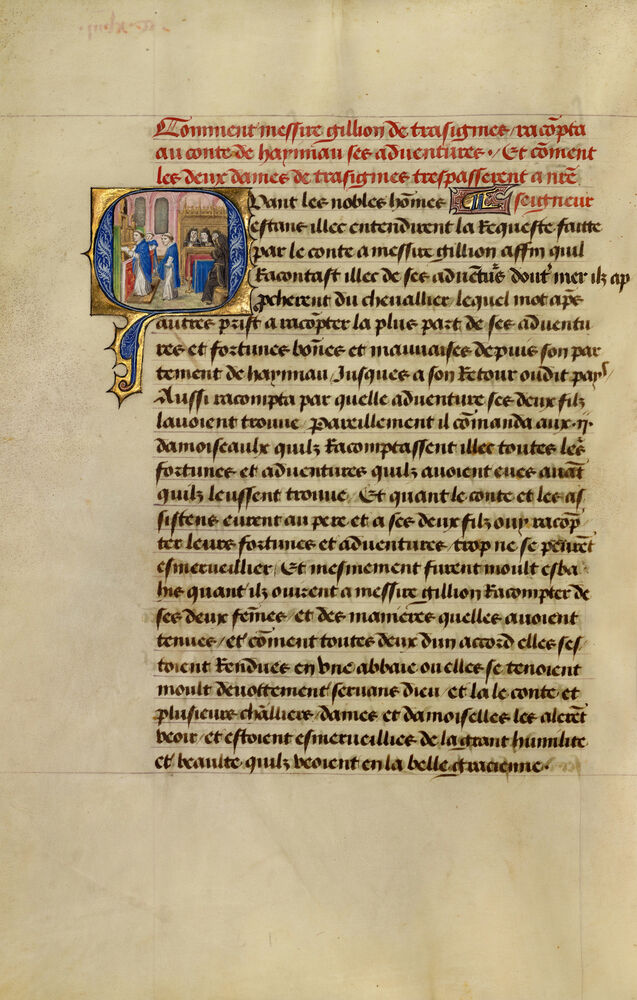 Comment messire gillion de trasignies / racōpta
au conte de haynnau ses aduentures · / Et cōment
les deux dames de trasignies trespasserent a nr̄e
Quant les nobles hōmes seigneur
estans illec entendirent la Requeste faitte
par le conte a messire gillion affin quil
Racontast illec de ses aduentũs dont mer ilz ap
pcherent du cheuallier lequel mot apẽs
autres prist a racōpter la plus part de ses aduentu
res et fortunes bōnes et mauuaises depuis son par
tement de haynnau / Jusques a son Retour oudit pays
Aussi racompta par quelle aduenture ses deux filz
lauoient trouue / Pareillement il cōmanda aux ·ij·
damoiseaulx quilz Racomptassent illec toutes les
fortunes et aduentures quilz auoient eues auāt
quilz leussent trouue / Et quant le conte et les as
sistens eurent au pere et a ses deux filz ouy racōp
ter leurs fortunes et aduentures / trop ne se peurēt
esmerueillier / Et mesmement furent moult esba
his quant ilz ouirent a messire gillion Racompter de
ses deux fēmes / et des manieres quelles auoient
tenues / et cōment toutes deux dun accord elles ses
toient Rendues en vne abbaie ou elles se tenoient
moult deuottement seruans dieu / et la le conte et
plusieurs chālliers / dames et damoiselles les alerēt
veoir / et estoient esmerueillies de la grant humilite
et beaulte quilz veoient en la belle gracienne ·